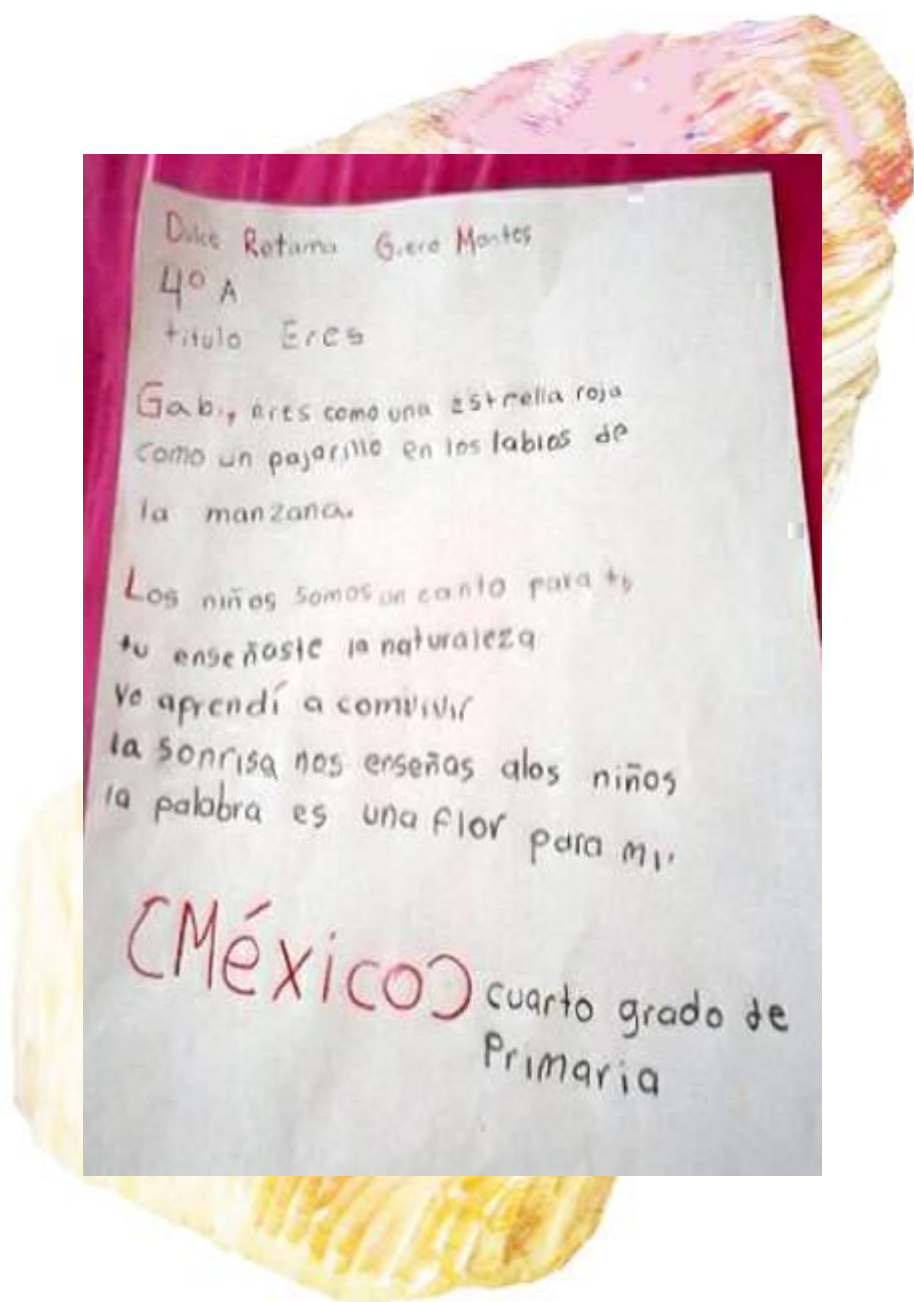 Dulce Retama Guero Montes
4º A
titulo Eres
Gabi, eres como una estrella roja
como un pajarillo en los labios de
la manzana.
Los niños somos un canto para ti,
tu enseñaste la naturaleza
yo aprendí a comvivir
la sonrisa nos enseñas alos niños
la palabra es una flor para mi.
(México) cuarto grado de
Primaria